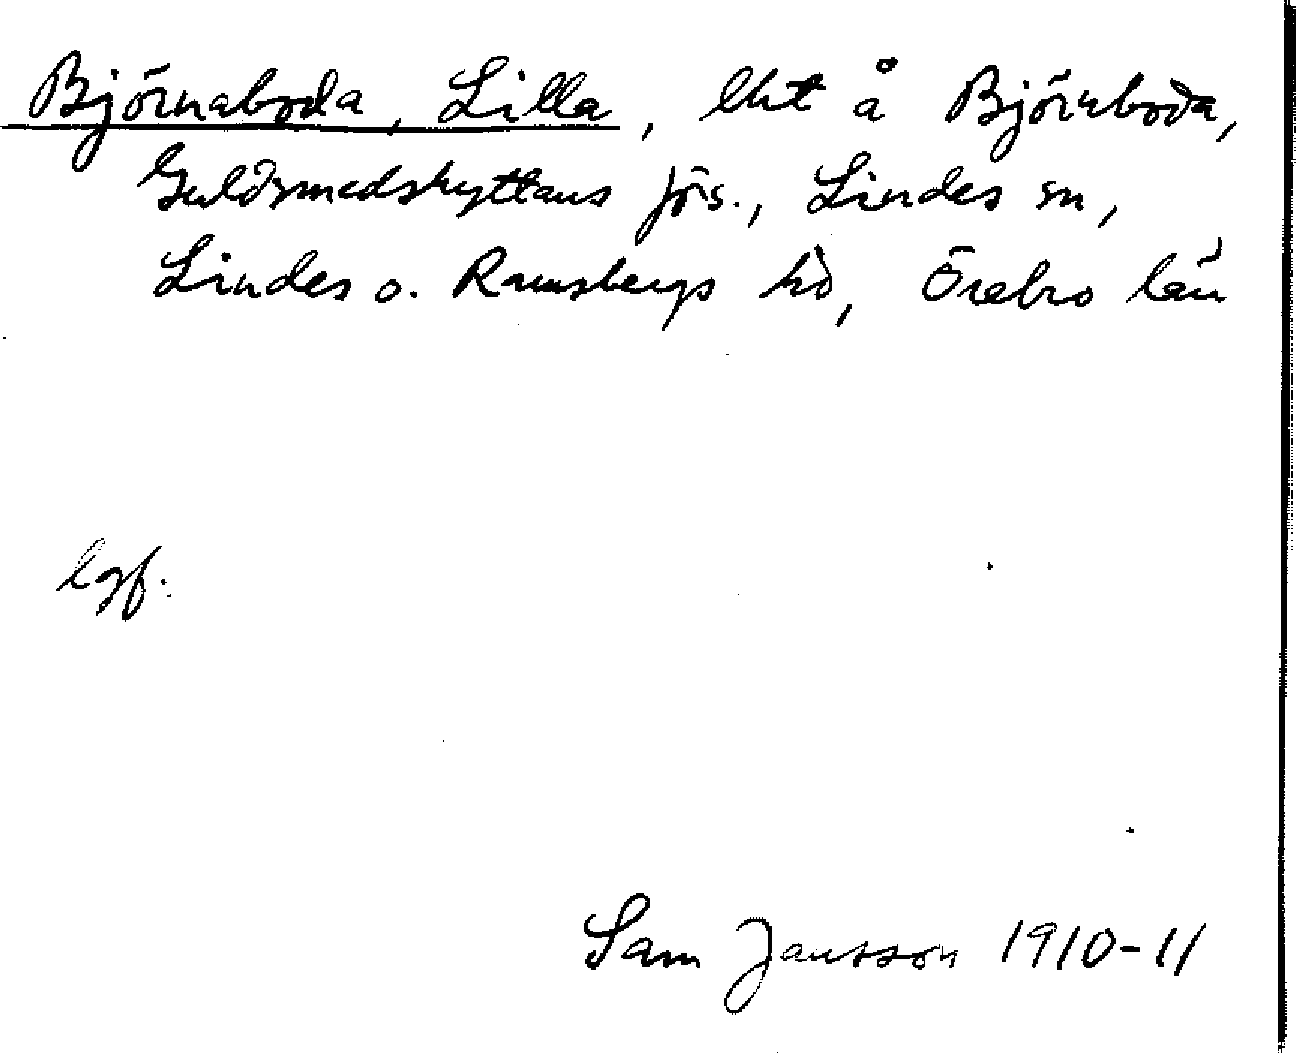 Björnaboda, Lilla, lht å Björnboda,
Guldsmedshyttans jös., Lindes sn,
Lindes o. Ramsbergs hd, Örebro län
lgf.
Sam Jansson 1910-11